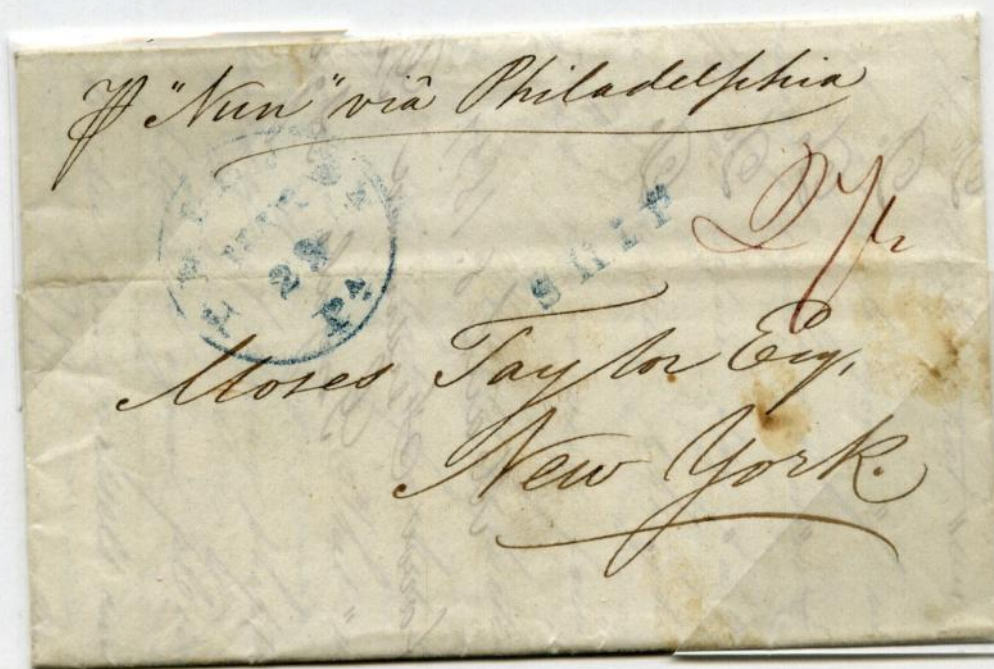 ⅌ "Nun" viâ Philadelphia
29
Pa
SHIP
Moses Taylor Esq,
New York.